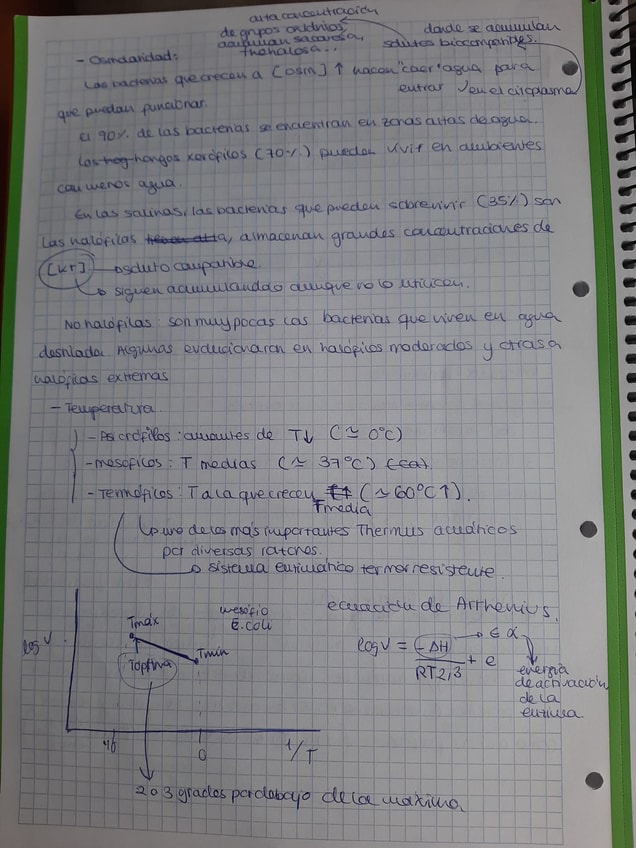 alta concentración
de grupos oxidrilos,
acumulan sacarosa,
trehalosa...
donde se acumulan
solutos biocompatibles.
- Osmolaridad:
Las bacterias que crecen a [osm] ↑ hacen "caer" agua para
entrar y en el citoplasma
que puedan funcionar.
El 90% de las bacterias se encuentran en zonas altas de agua.
Los hongos xerófilos (70%) pueden vivir en ambientes
con menos agua.
En las salinas, las bacterias que pueden sobrevivir (35%) son
las halófilas, almacenan grandes concentraciones de
[K+] → soluto compatible.
↳ siguen acumulando aunque no lo utilicen.
No halófilas: son muy pocas las bacterias que viven en agua
destilada. Algunas evolucionaron en halófilos moderados y otras a
halófilas extremas
- Temperatura.
- Psicrófilos: amantes de T↓ (≃ 0°C)
- mesófilos: T medias (≃ 37°C)
- Termófilos: T a la que crecen (≃ 60°C ↑).
T media
↳ uno de los más importantes Thermus acuáticos
por diversas razones.
→ sistema enzimático termorresistente.
mesófilo
E. coli
ecuación de Arrhenius.
log V
Tmáx
Tmin
Tóptima
log V = -ΔH / RT2,3 + e
→ E α
energía
de activación
de la
enzima.
40
0
1/T
2 o 3 grados por debajo de la máxima.